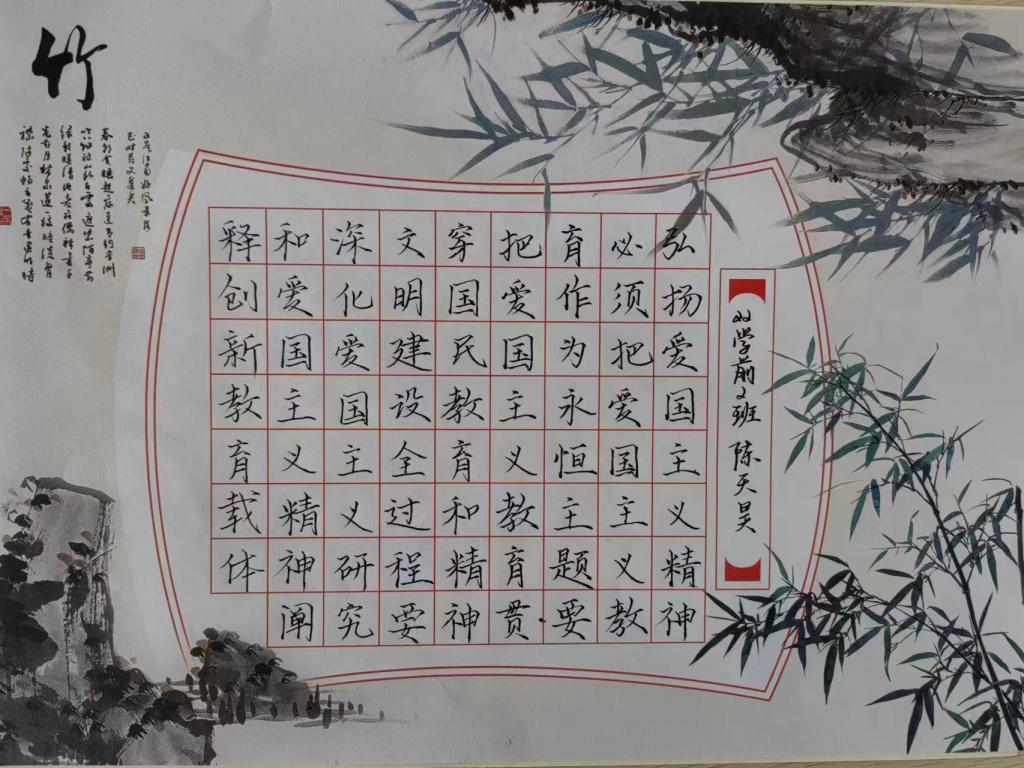 22学前2班 陈天昊
弘扬爱国主义精神
必须把爱国主义教
育作为永恒主题要
把爱国主义教育贯
穿国民教育和精神
文明建设全过程要
深化爱国主义研究
和爱国主义精神阐
释创新教育载体
竹